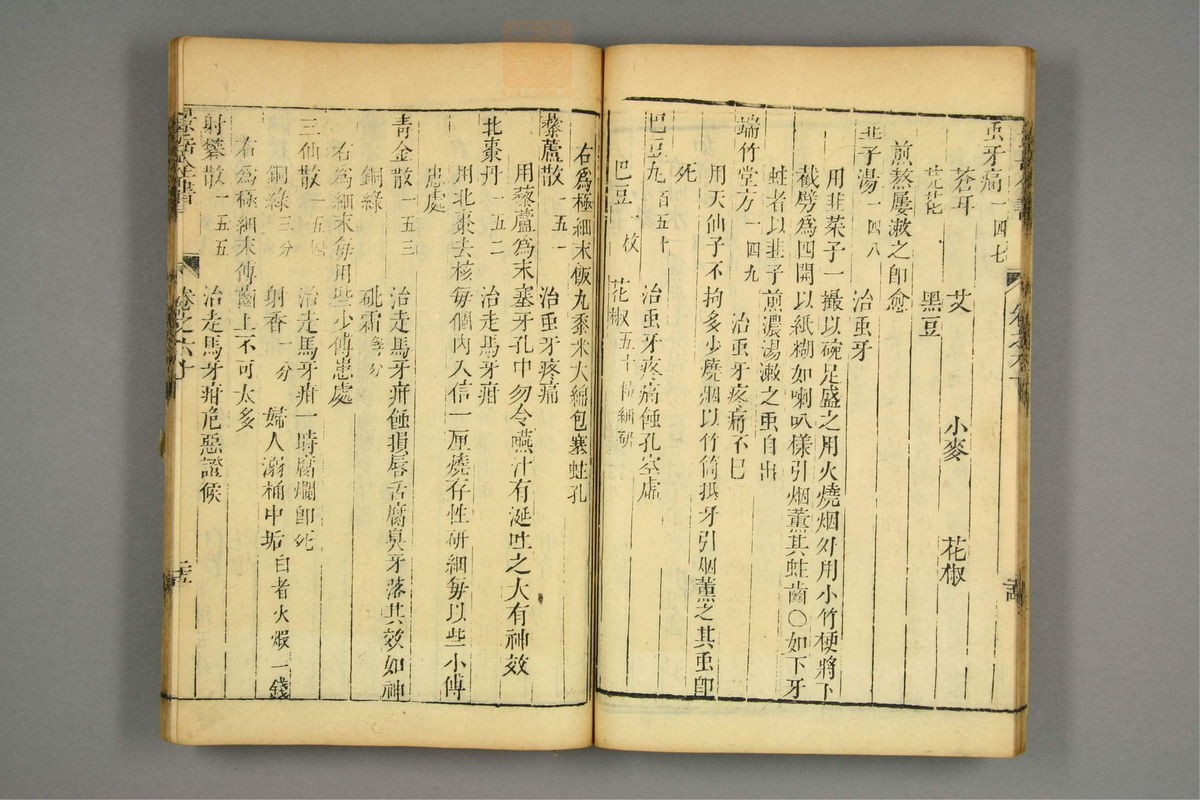 虫牙痛一四七
蒼耳 艾 小麥 花椒
芫花 黑豆
煎蒸屢漱之即愈
韭子湯一四八 治虫牙
用韭菜子一撮以碗足盛之用火燒烟外用小竹梗將下
截劈為四開以紙糊如喇叭樣引烟薰其蛀齒〇如下牙
蛀者以韭子煎濃湯漱之虫自出
端竹堂方一四九 治虫牙疼痛不已
用天仙子不拘多少燒烟以竹筒抵牙引烟薰之其虫即
死
巴豆丸百五十 治虫牙疼痛蝕孔空虛
巴豆一枚 花椒五十粒細研
右為極細末飯丸黍米大綿包塞蛀孔
藜蘆散一五一 治虫牙疼痛
用藜蘆為末塞牙孔中勿令嚥汁有涎吐之大有神效
北棗丹一五二 治走馬牙疳
用北棗去核每個內入信一厘燒存性研細每以些小傅
患處
青金散一五三 治走馬牙疳蝕損唇舌腐臭牙落其效如神
銅綠 砒霜等分
右為細末每用些少傅患處
三仙散一五四 治走馬牙疳一時腐爛即死
銅綠三分 射香一分 婦人溺桶中垢白者火煆一錢
右為極細末傅齒上不可太多
射礬散一五五 治走馬牙疳危惡證候
景岳全書 卷之六十